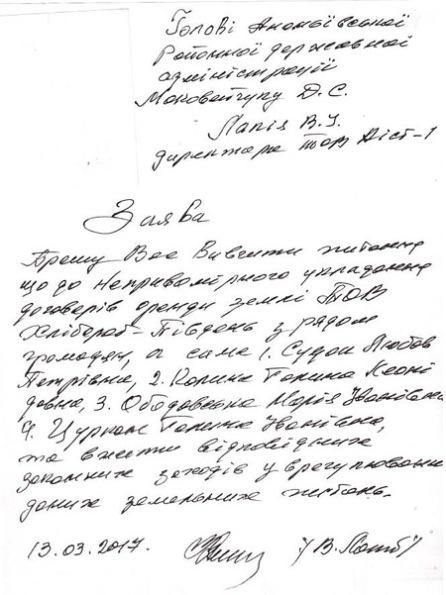 Голові Ананьївської
Районної державної
адміністрації
Д.С.
Лапія В.І.
директора ТОВ Діст-1
Заява
Прошу Вас вивчити питання
що до неправомірного укладання
договорів оренди землі ТОВ
Хлібороб-Південь з рядом
громадян, а саме 1. Судак Любов
Петрівна, 2. Калина Галина Леоні
довна, 3. Ободовська Марія Іванівна
4. Галина Іванівна,
та вжити відповідних
законних заходів у врегулюванні
даних земельних питань.
13.03.2017.